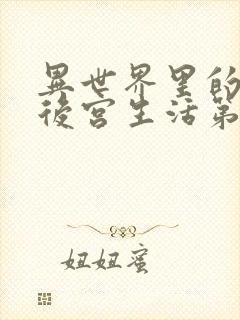 異世界里的
後宮生活第
妞妞蜜